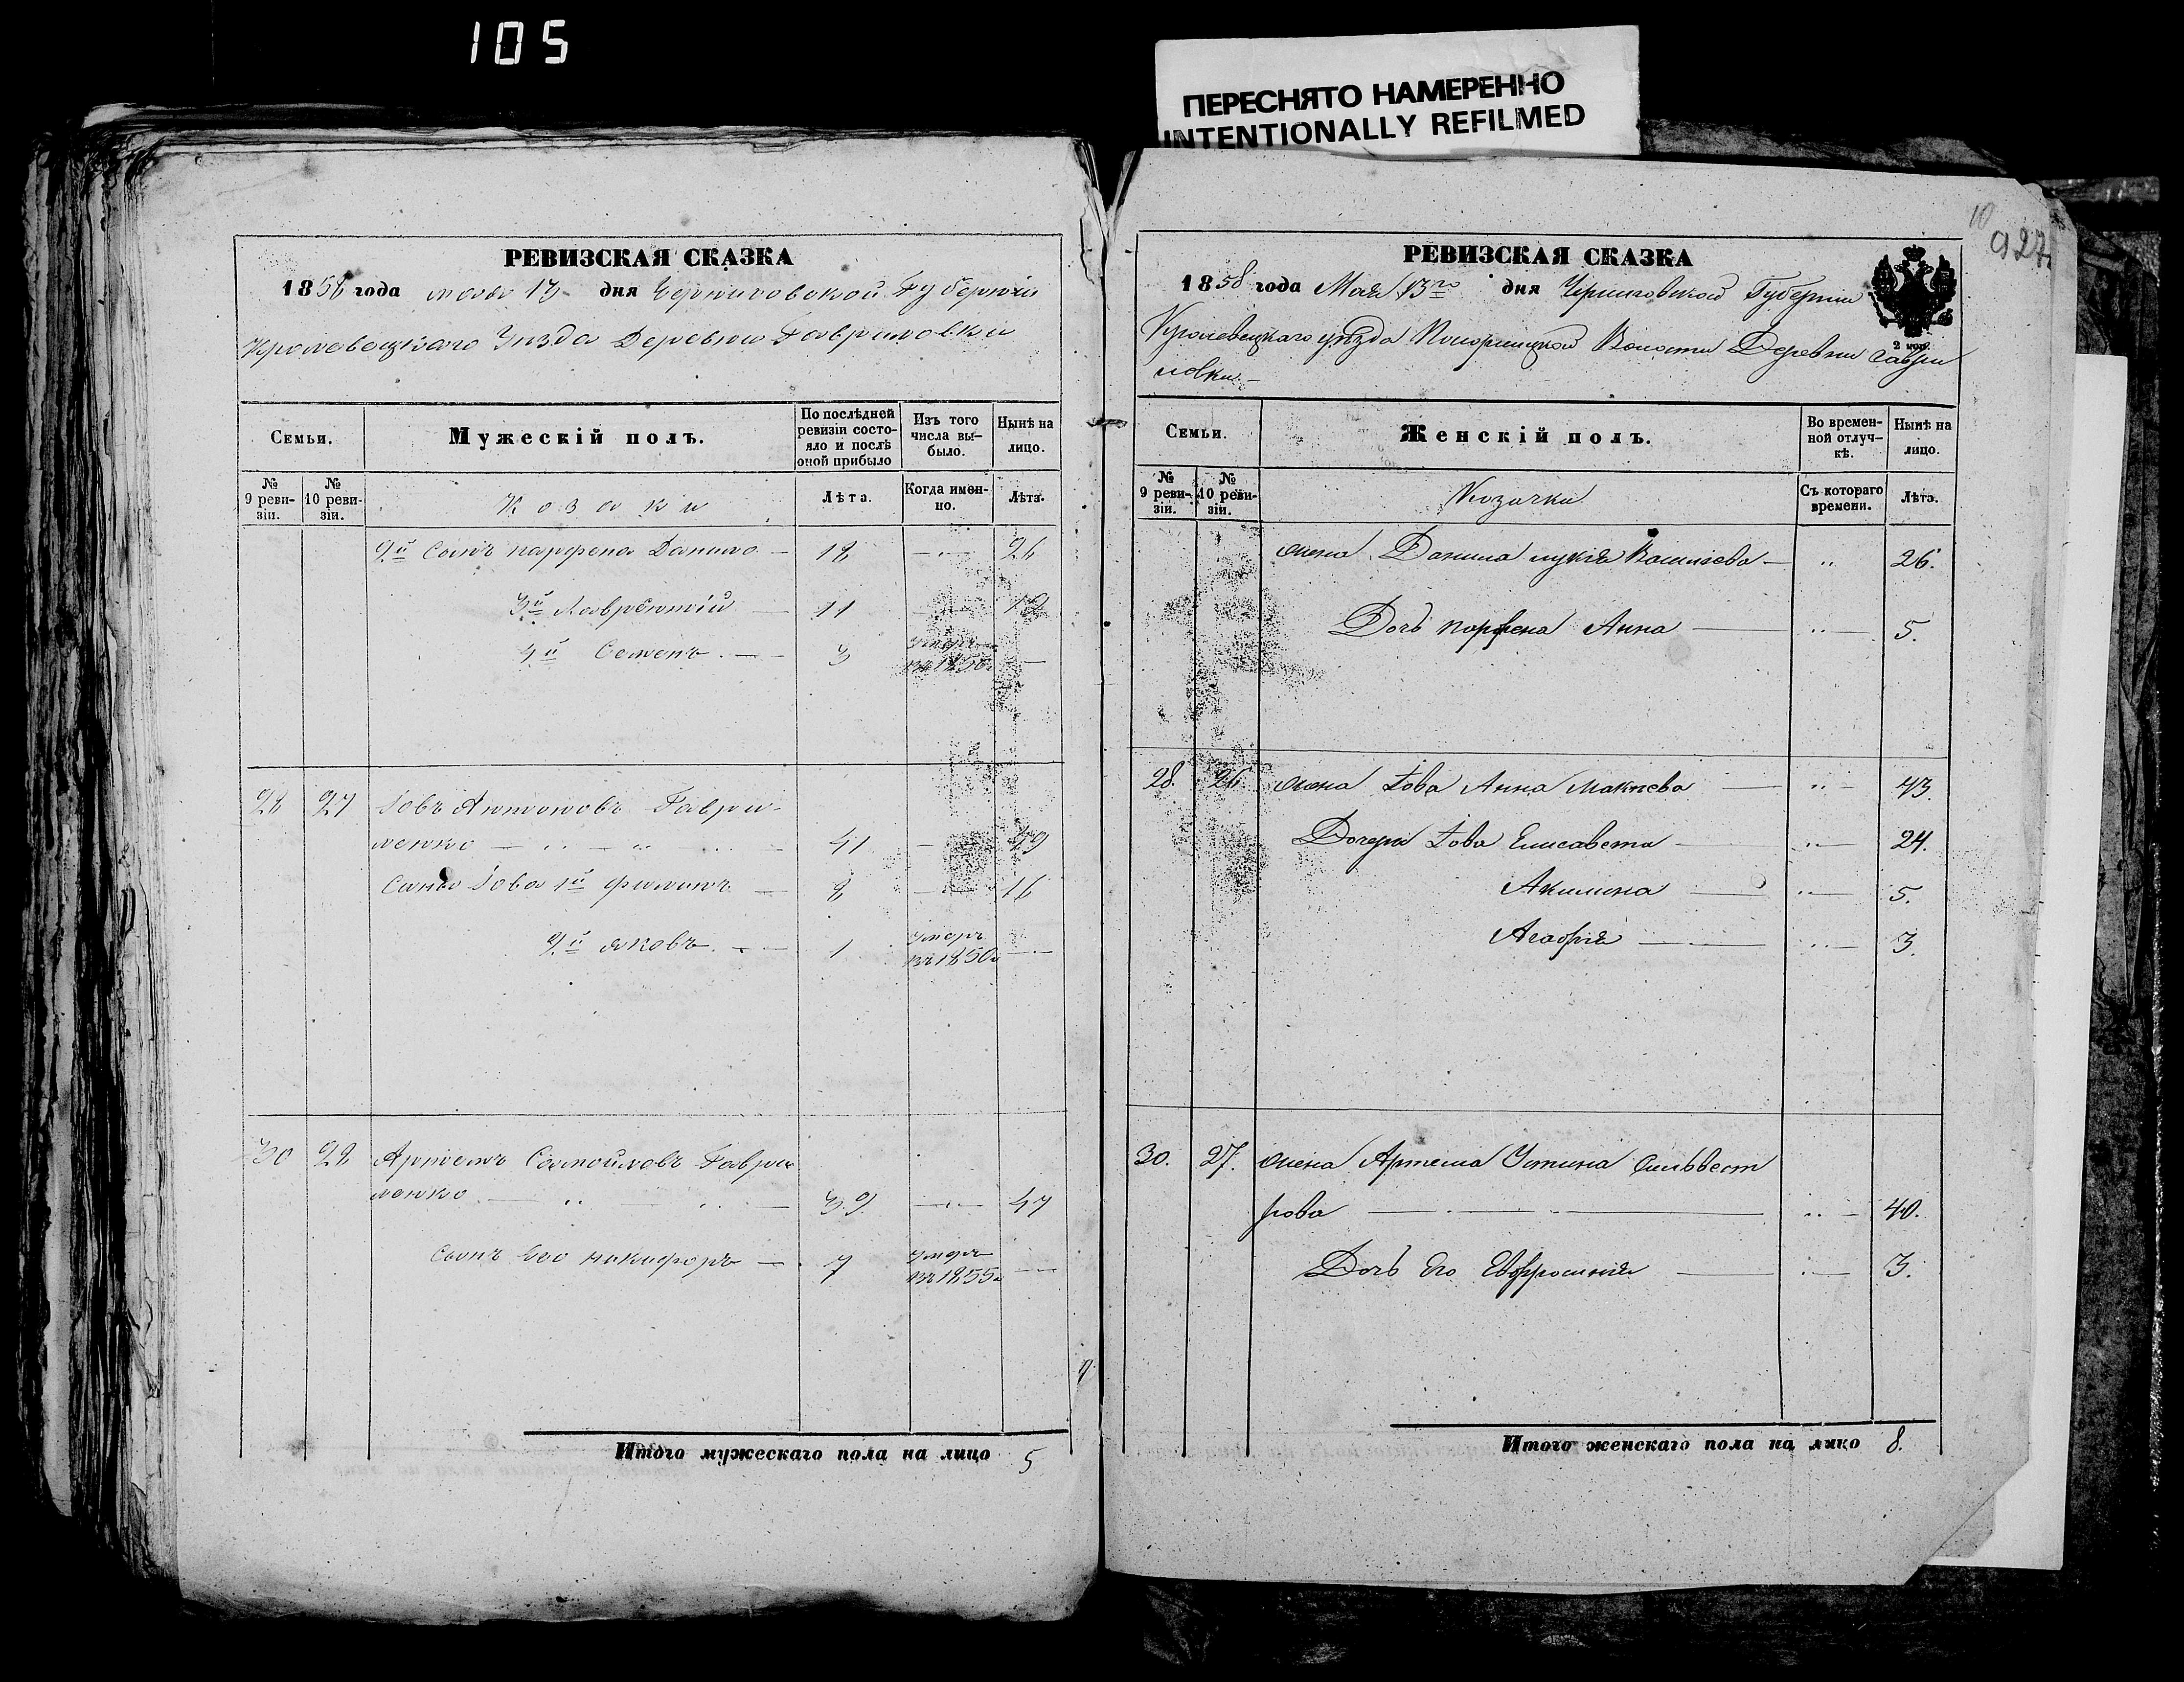 105
ПЕРЕСНЯТО НАМЕРЕННО
INTENTIONALLY REFILMED
РЕВИЗСКАЯ СКАЗКА
1858 года мая 13 дня Черниговской Губернiи
Кролевецкаго Уѣзда Деревни Гавриловки
Семьи.
Мужескій полъ.
По послѣдней ревизіи состояло и послѣ оной прибыло
Изъ того числа выбыло.
Нынѣ на лицо.
№ 9 ревизіи.
№ 10 ревизіи.
Козаки
Лѣта.
Когда именно.
Лѣта.
2й Сынъ парфена Данило 18 26
3й Лаврентiй 11 19
4й Семенъ 3 умеръ въ 1850г
28 27 Iовъ Антоновъ Гаври-
ленко 41 49
Сыны Iова 1й Филипъ 8 16
2й яковъ 1 умеръ въ 1850г
30 28 Артемъ Самойловъ Гаври
ленко 39 47
Сынъ Его никифоръ 7 умеръ въ 1855г
Итого мужескаго пола на лицо 5
10
927
РЕВИЗСКАЯ СКАЗКА
1858 года Мая 13го дня Черниговской Губернiи
Кролевецкаго уѣзда Волости Деревни Гаври
ловки
2 кор.
Семьи.
Женскій полъ.
Во временной отлучкѣ.
Нынѣ на лицо.
№ 9 ревизіи.
№ 10 ревизіи.
Козачки
Съ котораго времени.
Лѣта.
Жена Данила лукiя Василiева 26.
Дочь парфена Анна 5.
28. 26. Жена Iова Анна Макѣева 43.
Дочери Iова Елисавета 24.
Акилина 5.
Агафiя 3.
30. 27. Жена Артема Устина Сильвест
рова 40.
Дочь Его Евфросинiя 3.
Итого женскаго пола на лицо 8.